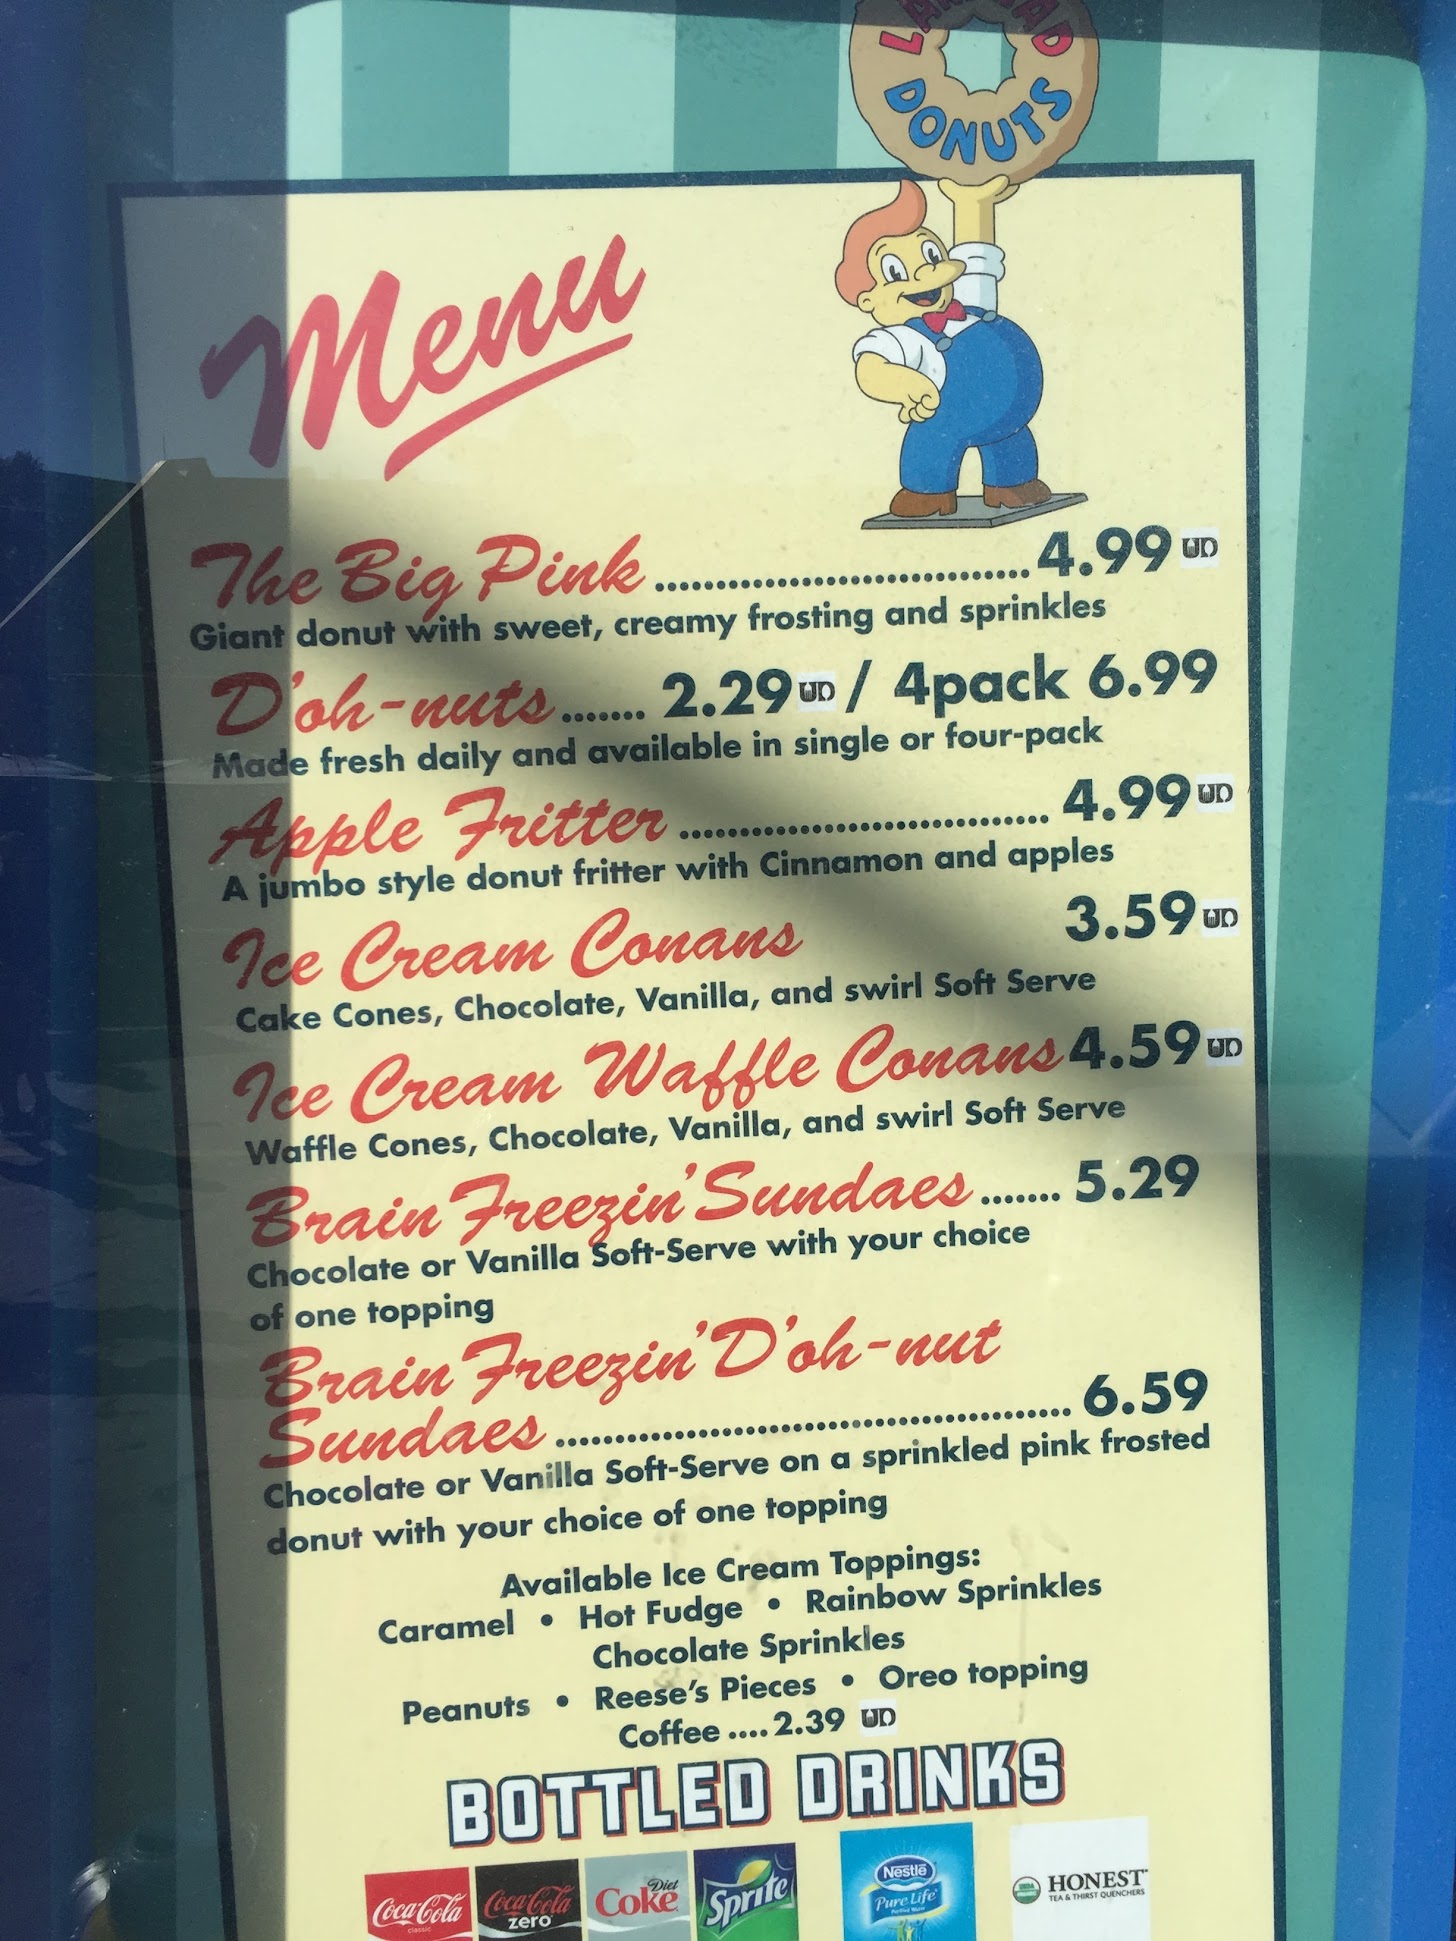 DONUTS
Menu
The Big Pink .............................. 4.99 UD
Giant donut with sweet, creamy frosting and sprinkles
D'oh-nuts ....... 2.29 UD / 4pack 6.99
Made fresh daily and available in single or four-pack
Apple Fritter .............................. 4.99 UD
A jumbo style donut fritter with Cinnamon and apples
Ice Cream Conans 3.59 UD
Cake Cones, Chocolate, Vanilla, and swirl Soft Serve
Ice Cream Waffle Conans 4.59 UD
Waffle Cones, Chocolate, Vanilla, and swirl Soft Serve
Brain Freezin' Sundaes ....... 5.29
Chocolate or Vanilla Soft-Serve with your choice
of one topping
Brain Freezin' D'oh-nut
Sundaes .......................................... 6.59
Chocolate or Vanilla Soft-Serve on a sprinkled pink frosted
donut with your choice of one topping
Available Ice Cream Toppings:
Caramel • Hot Fudge • Rainbow Sprinkles
Chocolate Sprinkles
Peanuts • Reese's Pieces • Oreo topping
Coffee ....2.39 UD
BOTTLED DRINKS
Coca-Cola classic
Coca-Cola zero
Diet Coke
Sprite
Nestlé Pure Life
USDA HONEST
TEA & THIRST QUENCHERS